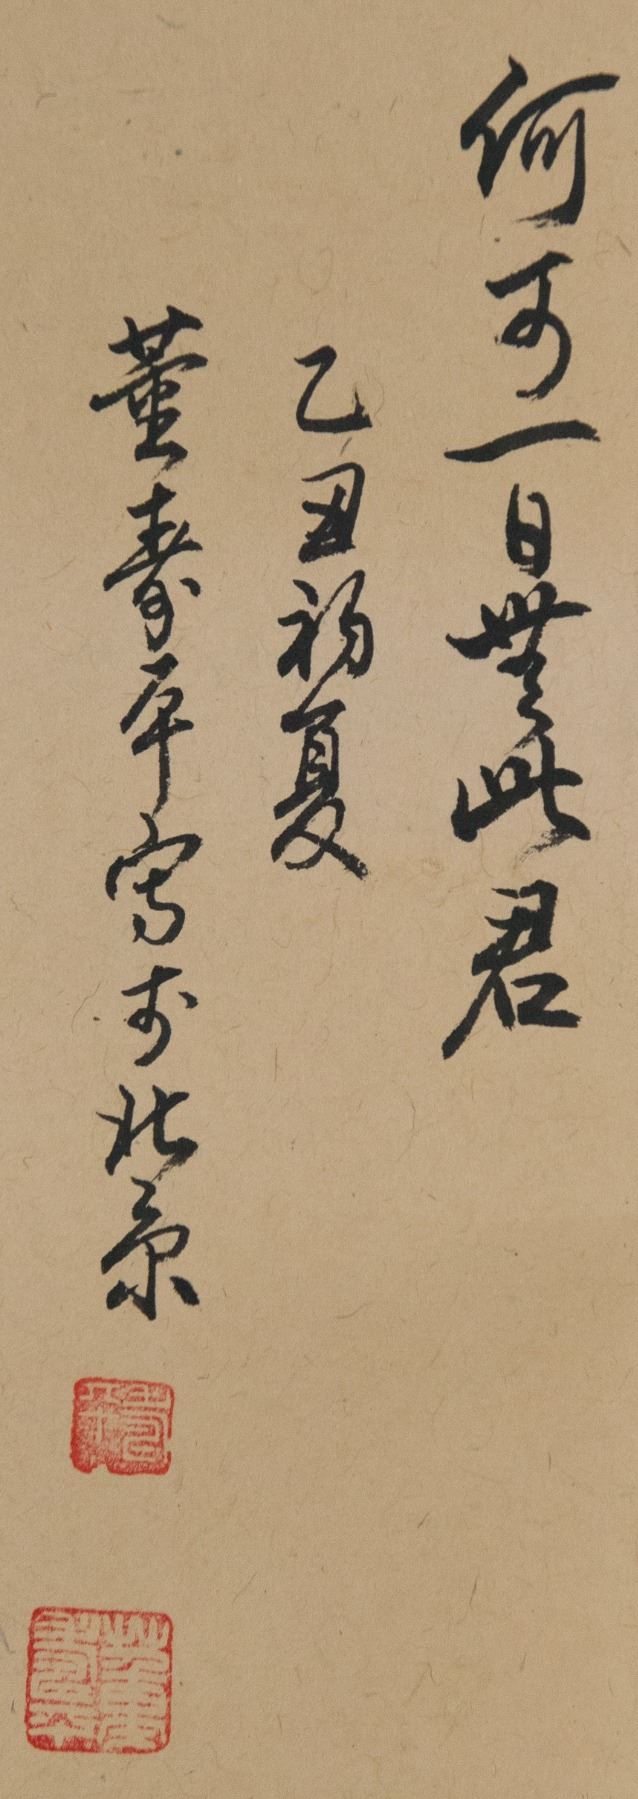 何可一日無此君
乙丑初夏
董壽平寫於北京